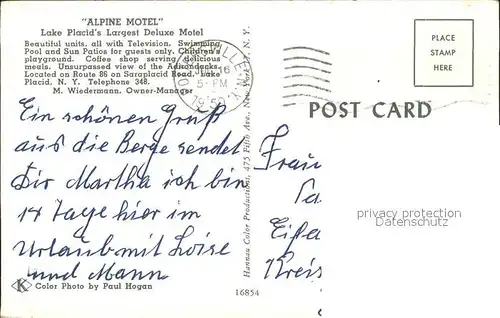 "ALPINE MOTEL"
Lake Placid's Largest Deluxe Motel
Beautiful units, all with Television. Swimming
Pool and Sun Patios for guests only. Children's
playground. Coffee shop serving delicious
meals. Unsurpassed view of the Adirondacks.
Located on Route 86 on Saraplacid Road. Lake
Placid, N. Y. Telephone 348.
M. Wiedermann, Owner-Manager
5-PM
PLACE
STAMP
HERE
POST CARD
Ein schönen Gruß
aus die Berge sendet
Dir Martha ich bin
14 Tage hier im
Urlaub mit Loise
und Mann
Hannau Color Productions, 475 Fifth Ave., New York, N. Y.
Frau
Kreis
privacy protection
Datenschutz
K
Color Photo by Paul Hogan
16854